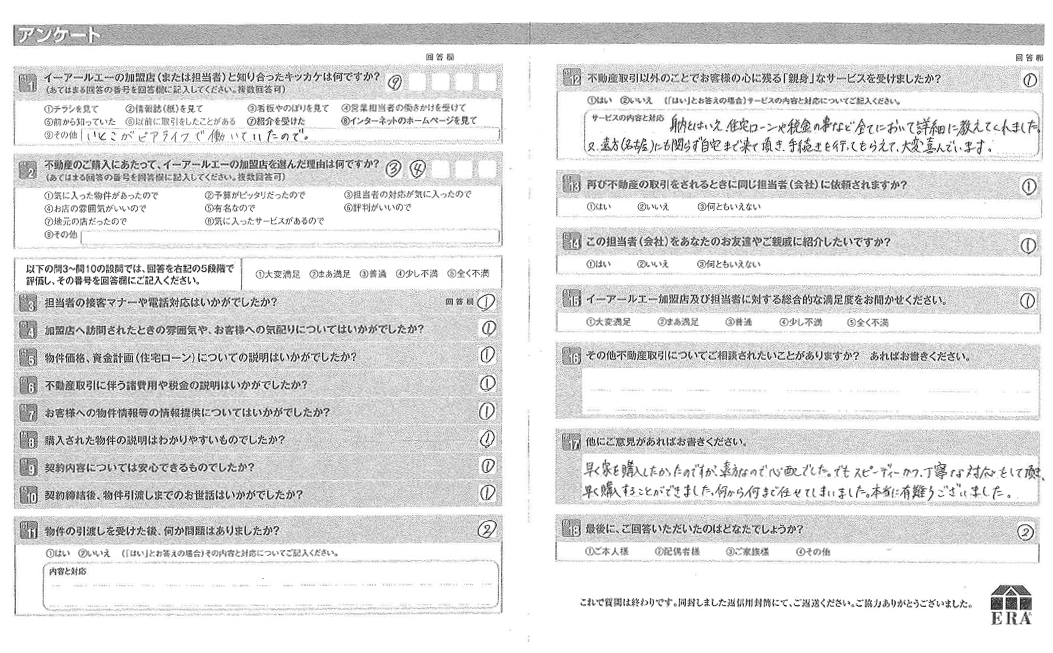 アンケート
回答欄
問1 イーアールエーの加盟店(または担当者)と知り合ったキッカケは何ですか? ⑨
(あてはまる回答の番号を回答欄に記入してください。複数回答可)
①チラシを見て ②情報誌(紙)を見て ③看板やのぼりを見て ④営業担当者の働きかけを受けて
⑤前から知っていた ⑥以前に取引をしたことがある ⑦紹介を受けた ⑧インターネットのホームページを見て
⑨その他 いとこがピアライフで働いていたので。
問2 不動産のご購入にあたって、イーアールエーの加盟店を選んだ理由は何ですか? ③ ④
(あてはまる回答の番号を回答欄に記入してください。複数回答可)
①気に入った物件があったので ②予算がピッタリだったので ③担当者の対応が気に入ったので
④お店の雰囲気がいいので ⑤有名なので ⑥評判がいいので
⑦地元の店だったので ⑧気に入ったサービスがあるので
⑨その他
以下の問3〜問10の設問では、回答を右記の5段階で
評価し、その番号を回答欄にご記入ください。
①大変満足 ②まあ満足 ③普通 ④少し不満 ⑤全く不満
問3 担当者の接客マナーや電話対応はいかがでしたか? 回答欄 ①
問4 加盟店へ訪問されたときの雰囲気や、お客様への気配りについてはいかがでしたか? ①
問5 物件価格、資金計画(住宅ローン)についての説明はいかがでしたか? ①
問6 不動産取引に伴う諸費用や税金の説明はいかがでしたか? ①
問7 お客様への物件情報等の情報提供についてはいかがでしたか? ①
問8 購入された物件の説明はわかりやすいものでしたか? ①
問9 契約内容については安心できるものでしたか? ①
問10 契約締結後、物件引渡しまでのお世話はいかがでしたか? ①
問11 物件の引渡しを受けた後、何か問題はありましたか? ②
①はい ②いいえ (「はい」とお答えの場合)その内容と対応についてご記入ください。
内容と対応
回答欄
問12 不動産取引以外のことでお客様の心に残る「親身」なサービスを受けましたか? ①
①はい ②いいえ (「はい」とお答えの場合)サービスの内容と対応についてご記入ください。
サービスの内容と対応 身内とはいえ、住宅ローンや税金の事など全てにおいて詳細に教えてくれました。
又、遠方(名古屋)にも関らず自宅まで来て頂き、手続きを行ってもらえて、大変喜んでいます。
問13 再び不動産の取引をされるときに同じ担当者(会社)に依頼されますか? ①
①はい ②いいえ ③何ともいえない
問14 この担当者(会社)をあなたのお友達やご親戚に紹介したいですか? ①
①はい ②いいえ ③何ともいえない
問15 イーアールエー加盟店及び担当者に対する総合的な満足度をお聞かせください。 ①
①大変満足 ②まあ満足 ③普通 ④少し不満 ⑤全く不満
問16 その他不動産取引についてご相談されたいことがありますか? あればお書きください。
問17 他にご意見があればお書きください。
早く家を購入したかったのですが、遠方なので心配でした。でもスピーディーかつ、丁寧な対応をして頂き、
早く購入することができました。何から何まで任せてしまいました。本当に有難うございました。
問18 最後に、ご回答いただいたのはどなたでしょうか? ②
①ご本人様 ②配偶者様 ③ご家族様 ④その他
これで質問は終わりです。同封しました返信用封筒にて、ご返送ください。ご協力ありがとうございました。
ERA